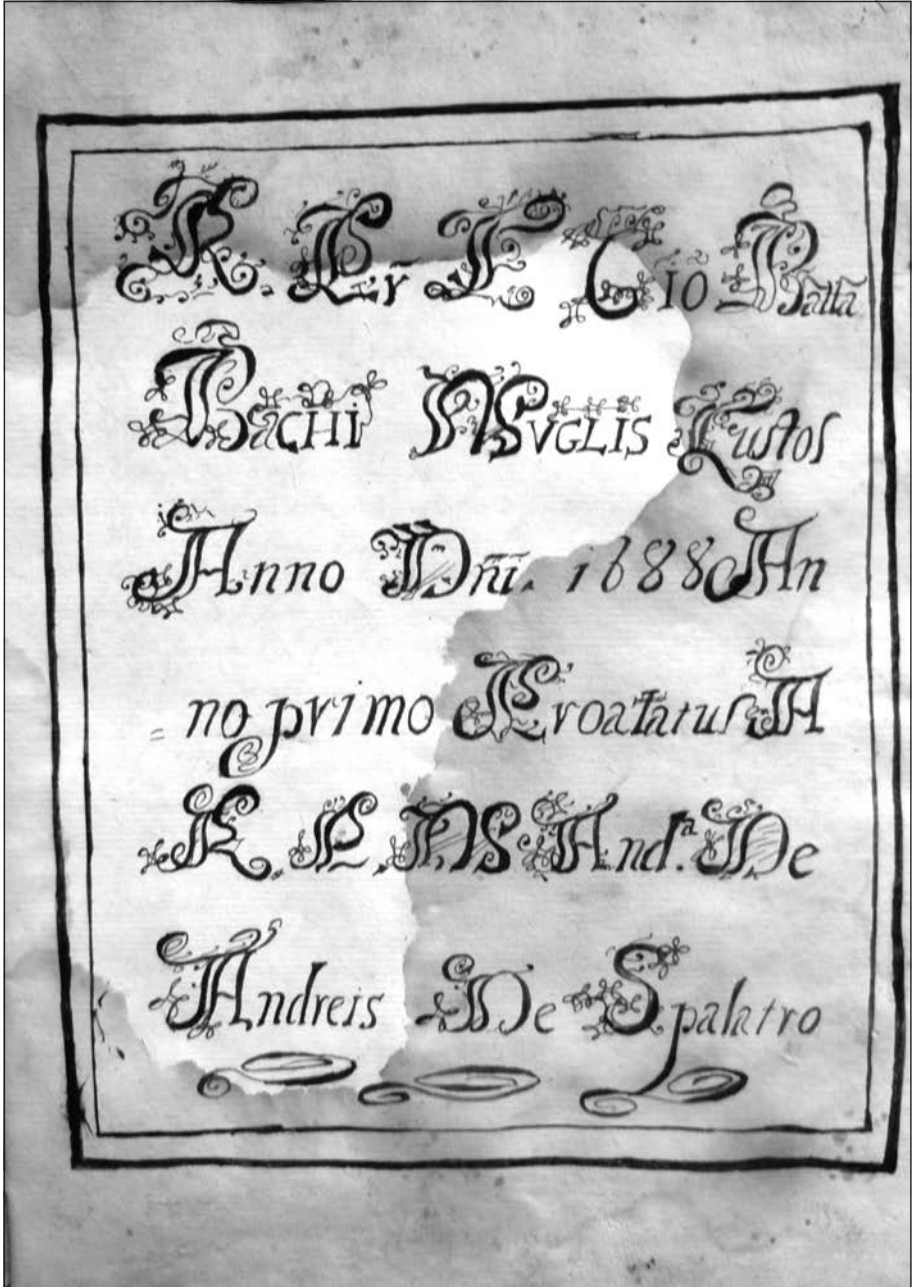 R. Pr̃ F Gio Batta
Bachi MVGLIS Custos
Anno Dñi. 1688 An
= no primo Proatatus A
R. P. M Andª. De
Andreis De Spalatro